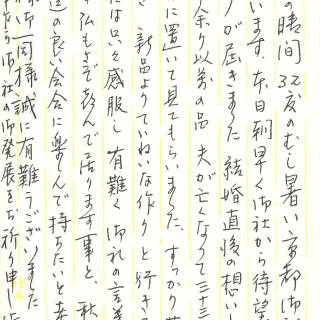 の晴間 32度のむし暑い京都御
います。本日朝早く御社から待望
が届きました 結婚直後の想い
余り以前の品 夫が亡くなって三十三
に置いて見てもらいました。すっかり
新品よりていねいな作りと行き
は只々感服し 有難く御礼の言葉
弘もさぞ喜んで居ります事と、秋
の良い会合に楽しんで持ちたいと
一同様、誠に有難うございました
御社の御発展をお祈り申し